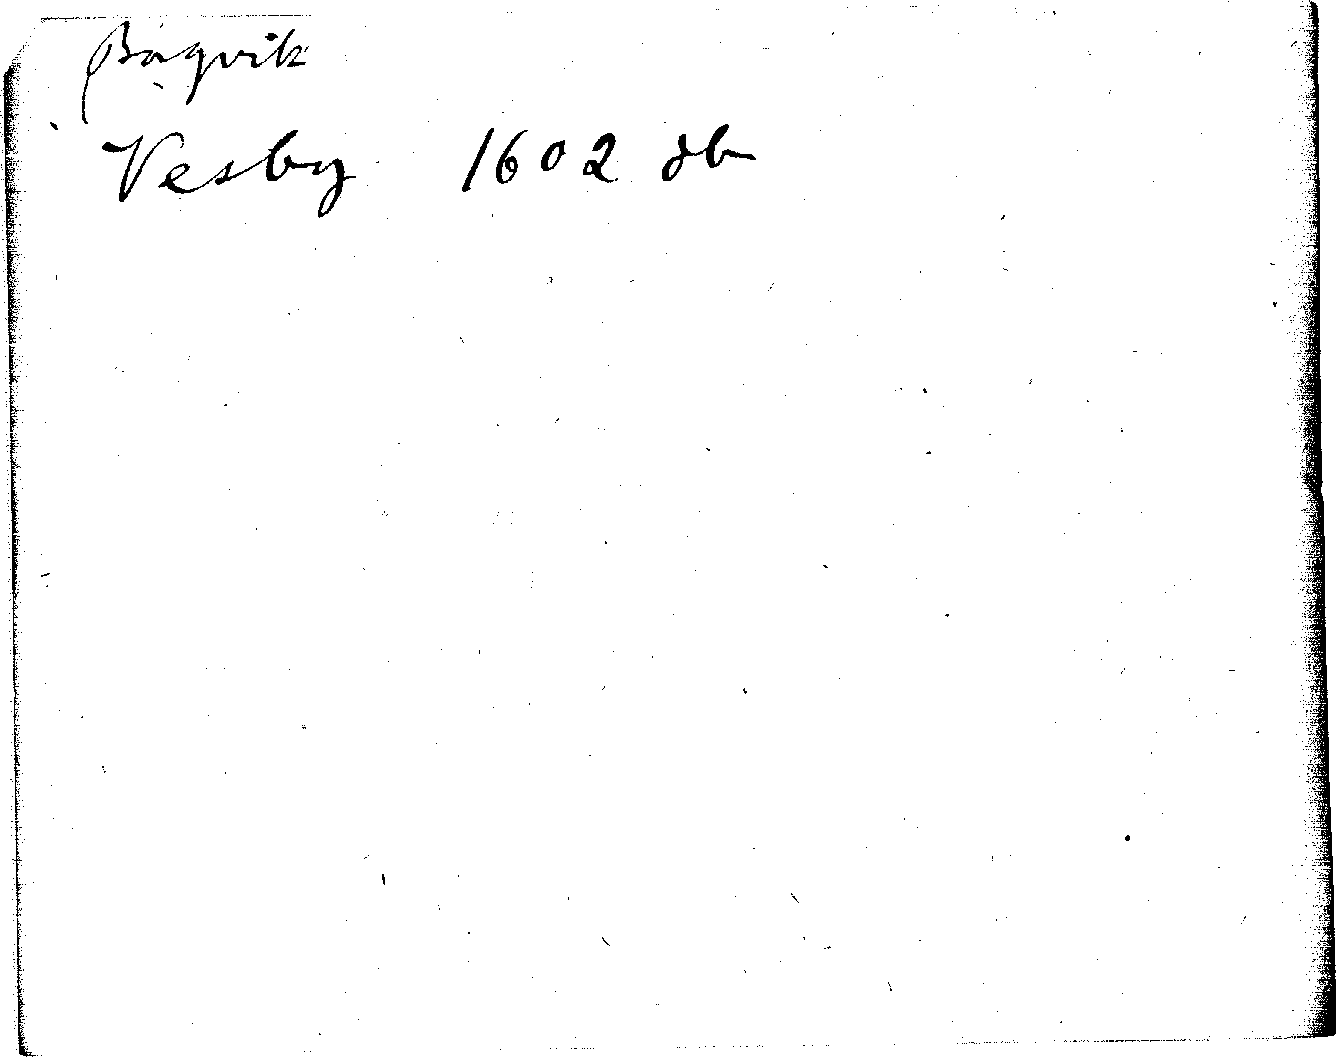 Bagvik
Vesby 1602 db